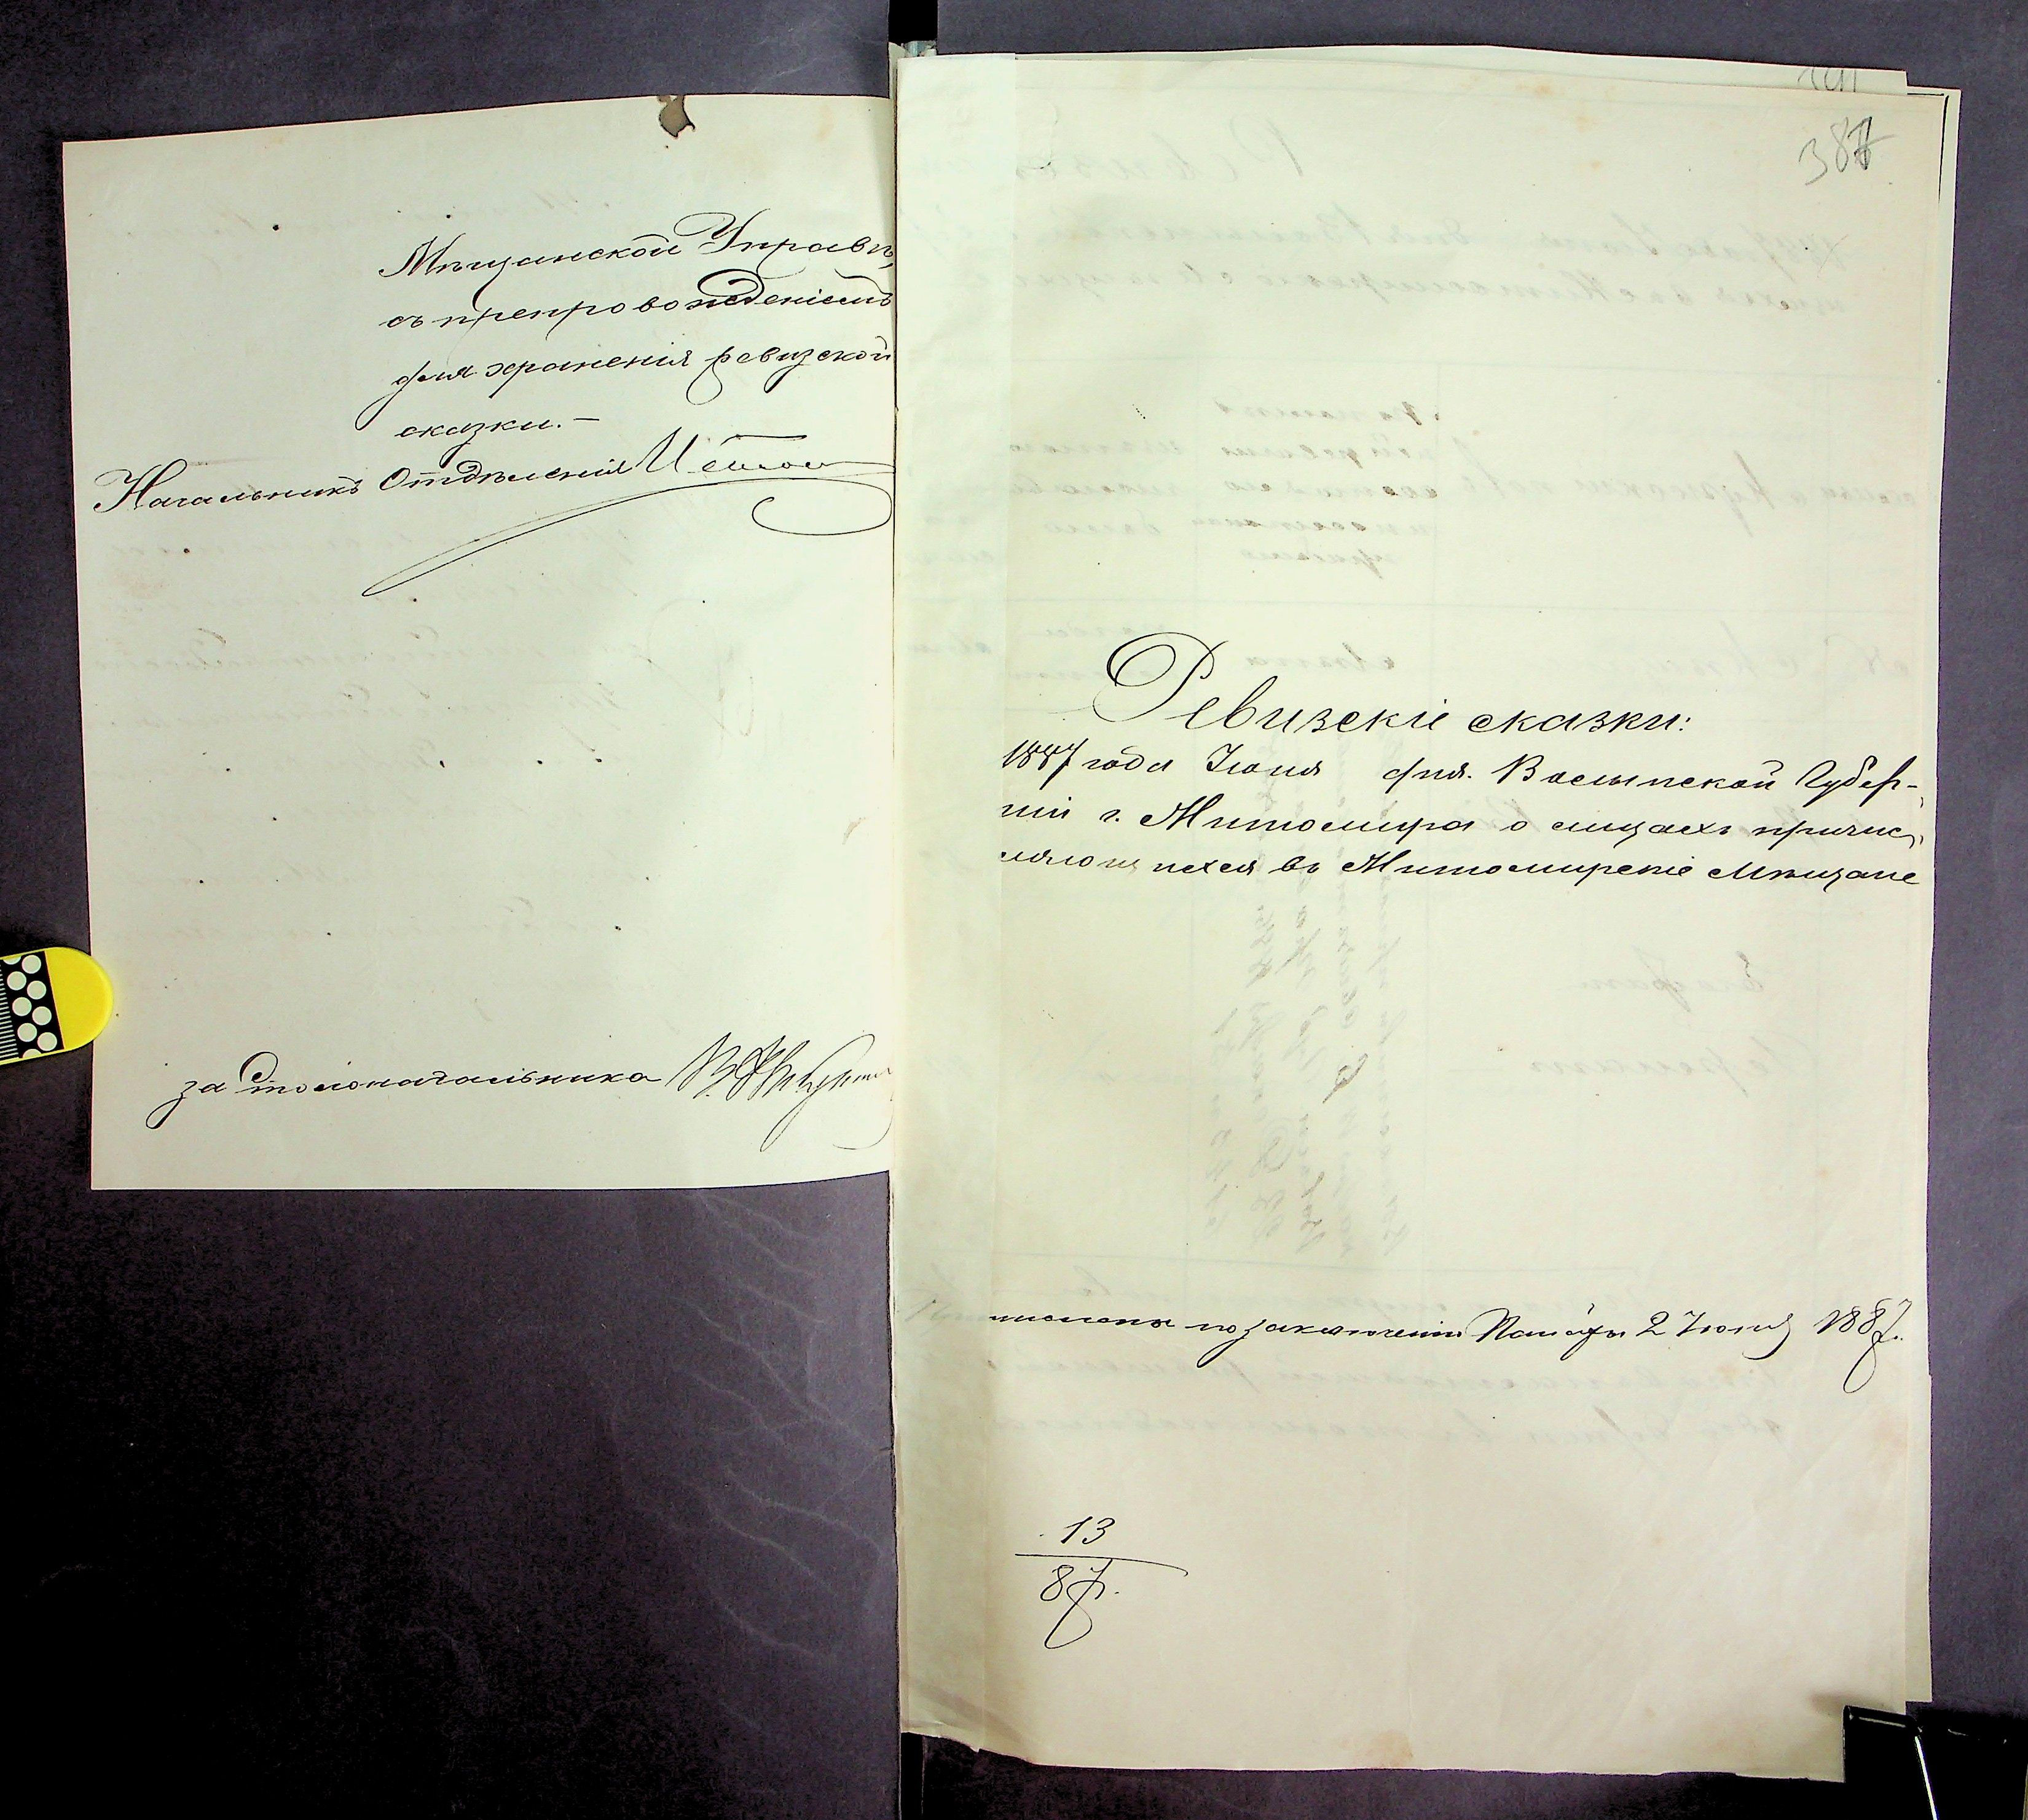 Мѣщанской Управѣ,
съ препровожденіемъ
для храненія ревизской
сказки.—
Начальникъ Отдѣленія
за Столоначальника
387
Ревизскіе сказки:
1887 года Іюня дня. Волынской Губер-
ніи г. Житомира о лицахъ причис-
ляющихся въ Житомирскіе Мѣщане
числена по заключенію Палаты 2 Іюня 1887.
13
87.